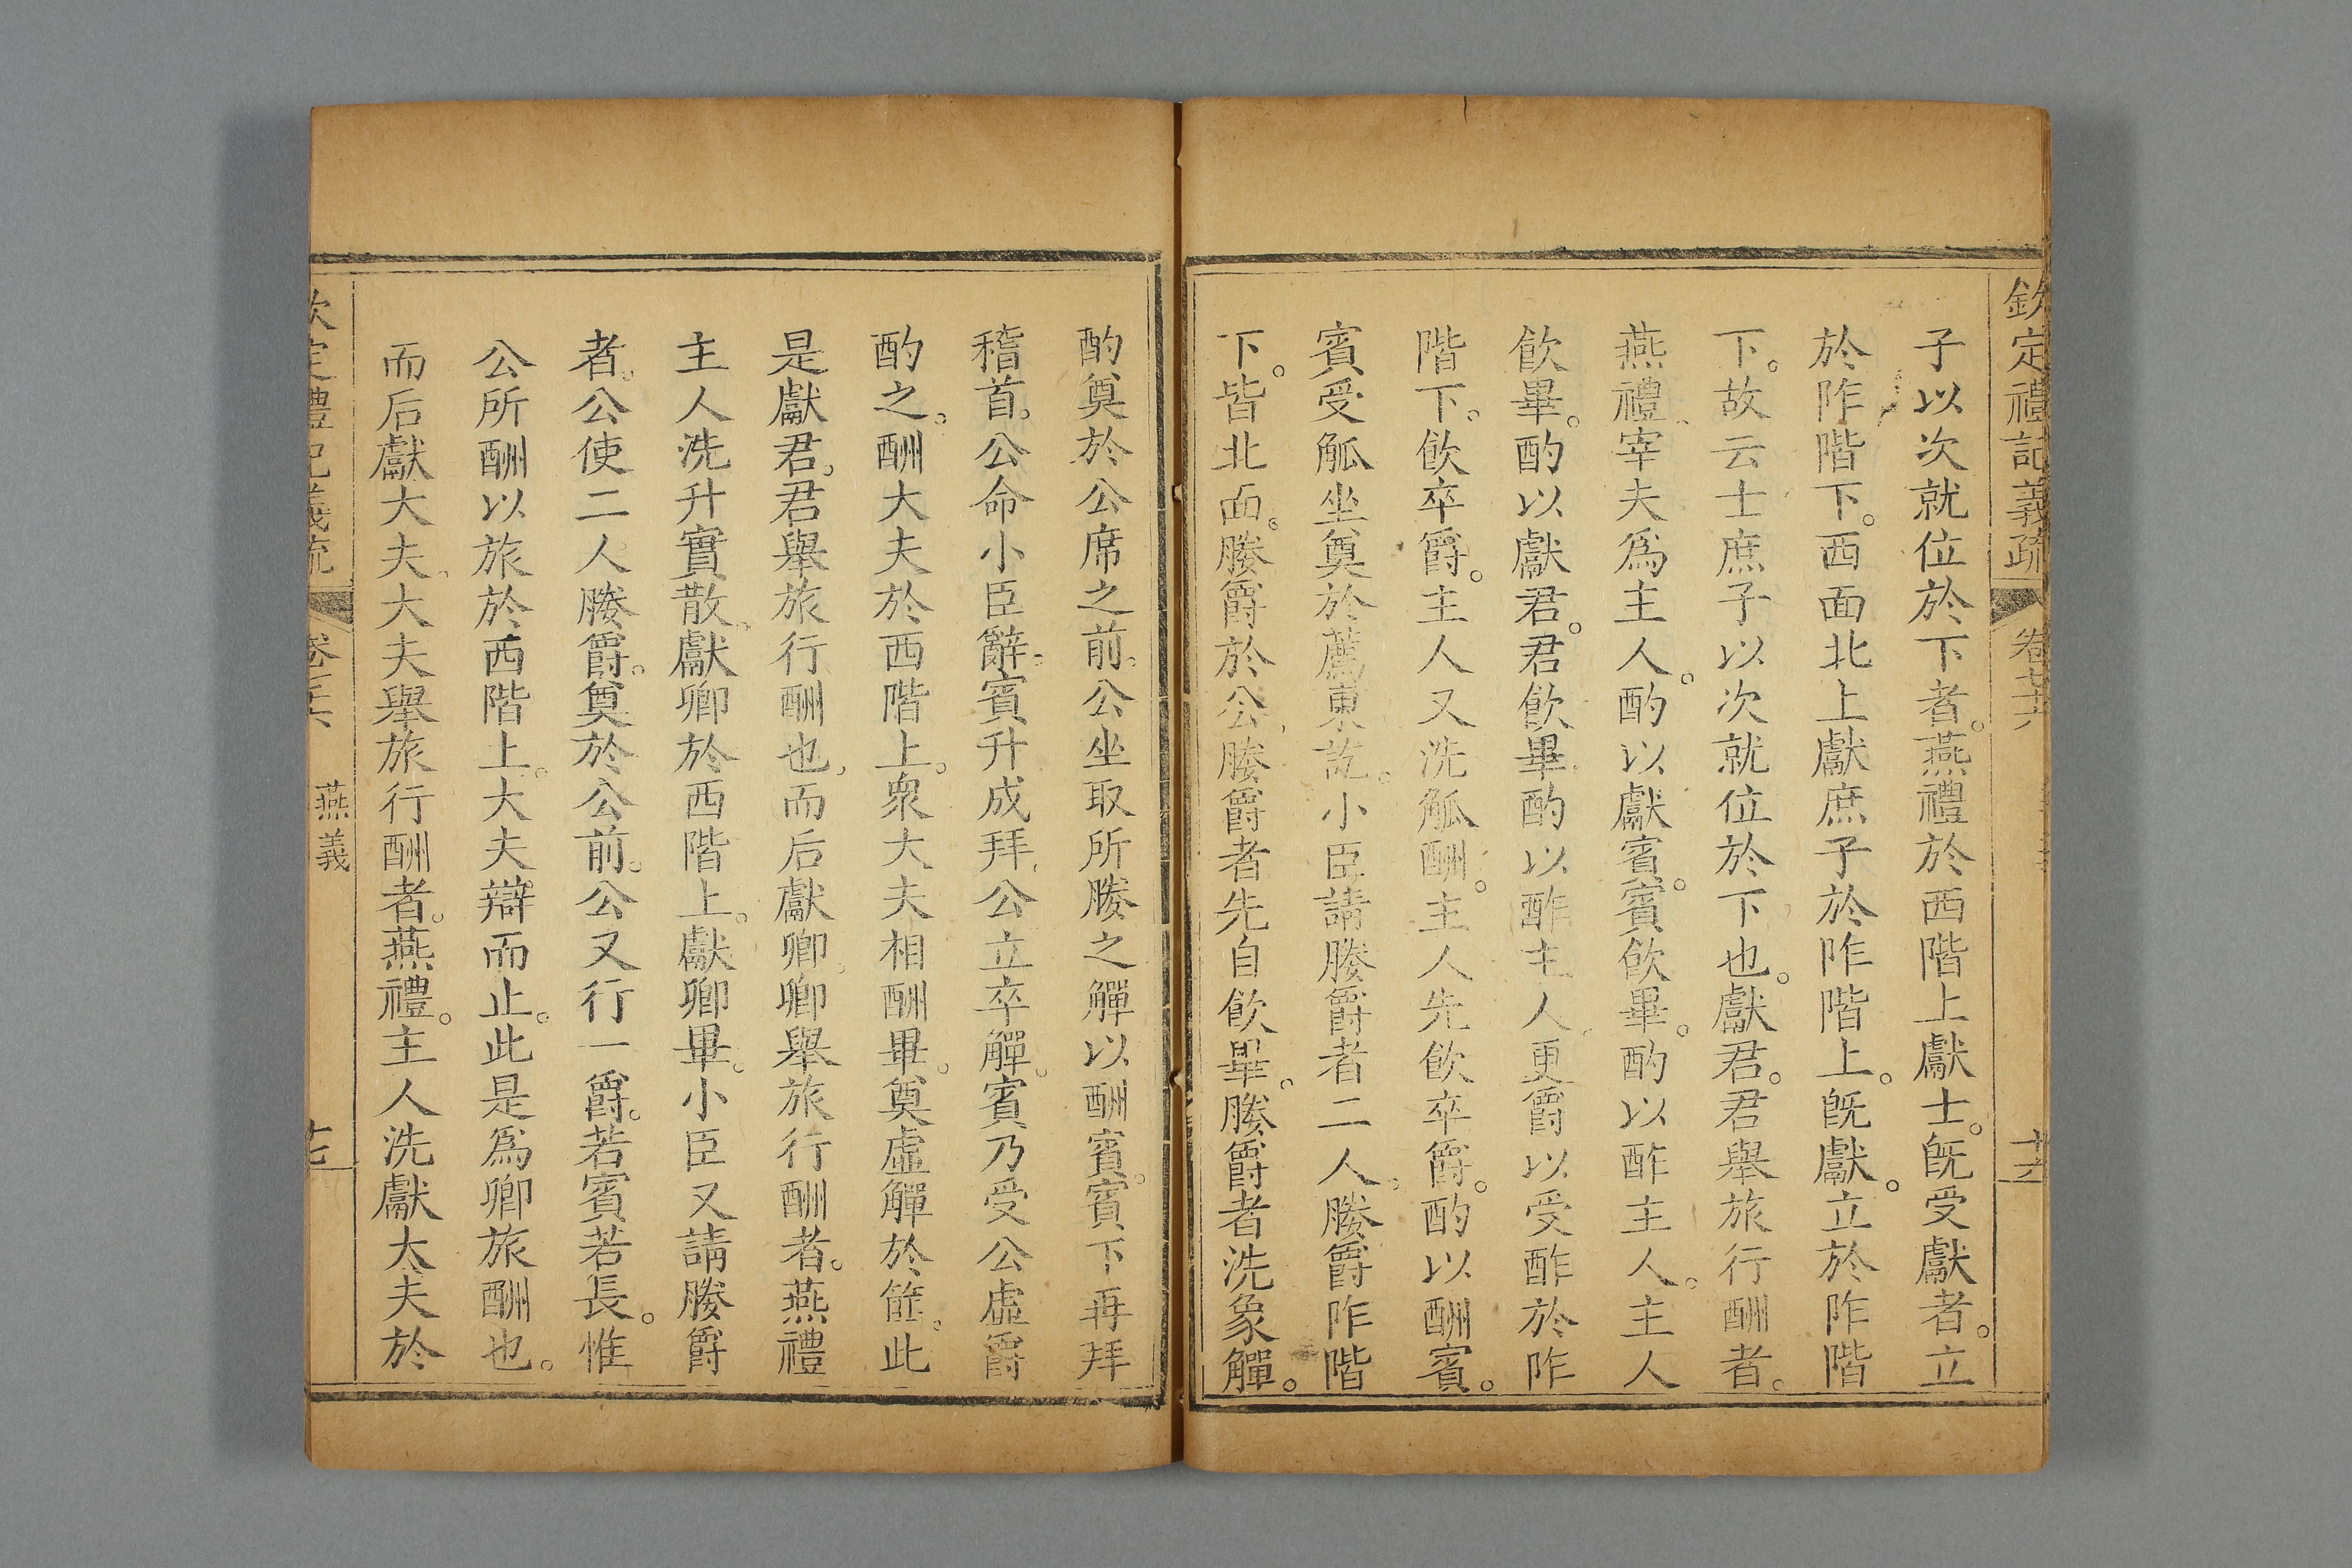 欽定禮記義疏
子以次就位於下者。燕禮於西階上獻士。旣受獻者。立
於阼階下。西面北上獻庶子於阼階上。旣獻。立於阼階
下。故云士庶子以次就位於下也。獻君。君舉旅行酬者。
燕禮、宰夫爲主人。酌以獻賓。賓飮畢。酌以酢主人。主人
飮畢。酌以獻君。君飮畢酌以酢主人、更爵以受酢於阼
階下。飮卒爵。主人又洗觚酬。主人先飮卒爵。酌以酬賓。
賓受觚坐奠於薦東訖。小臣請媵爵者二人。媵爵阼階
下。皆北面。媵爵於公、媵爵者先自飮畢。媵爵者洗象觶。
酌奠於公席之前。公坐取所媵之觶以酬賓。賓下再拜
稽首。公命小臣辭。賓升成拜、公立卒觶。賓乃受公虛爵
酌之。酬大夫於西階上。衆大夫相酬畢。奠虛觶於篚。此
是獻君。君舉旅行酬也、而后獻卿、卿舉旅行酬者。燕禮
主人洗升實散、獻卿於西階上。獻卿畢。小臣又請媵爵
者。公使二人媵爵。奠於公前。公又行一爵。若賓若長。惟
公所酬以旅於西階上。大夫辯而止。此是爲卿旅酬也。
而后獻大夫、大夫舉旅行酬者。燕禮。主人洗獻大夫於
燕義